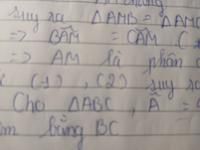 suy ra ΔAMB = ΔAMC
=> BÂM = CÂM (
=> AM là phân
(1), (2) suy ra
Cho ΔABC, Â =
bằng BC